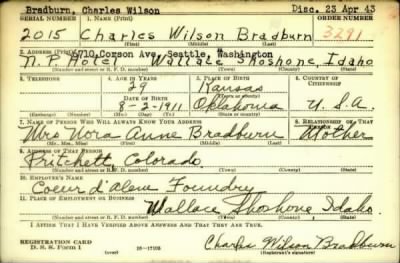 Bradburn, Charles Wilson Disc. 23 Apr 43
SERIAL NUMBER 1. NAME (Print) ORDER NUMBER
2015 Charles Wilson Bradburn 3291
(First) (Middle) (Last)
2. ADDRESS (Print) 6710 Corson Ave, Seattle, Washington
N. P. Hotel Wallace Shoshone, Idaho
(Number and street or R. F. D. number) (Town) (County) (State)
3. TELEPHONE 4. AGE IN YEARS 5. PLACE OF BIRTH 6. COUNTRY OF CITIZENSHIP
29 Kansas
DATE OF BIRTH (Town or county)
8-2-1911 Oklahoma U.S.A.
(Exchange) (Number) (Mo.) (Day) (Yr.) (State or country)
7. NAME OF PERSON WHO WILL ALWAYS KNOW YOUR ADDRESS 8. RELATIONSHIP OF THAT PERSON
Mrs Nora Anne Bradburn Mother
(Mr., Mrs., Miss) (First) (Middle) (Last)
9. ADDRESS OF THAT PERSON
Pritchett, Colorado
(Number and street or R. F. D. number) (Town) (County) (State)
10. EMPLOYER'S NAME
Coeur d'Alene Foundry
11. PLACE OF EMPLOYMENT OR BUSINESS
Wallace Shoshone Idaho
(Number and street or R. F. D. number) (Town) (County) (State)
I AFFIRM THAT I HAVE VERIFIED ABOVE ANSWERS AND THAT THEY ARE TRUE.
REGISTRATION CARD
D. S. S. FORM 1 16-17105 Charles Wilson Bradburn
(over) (Registrant's signature)